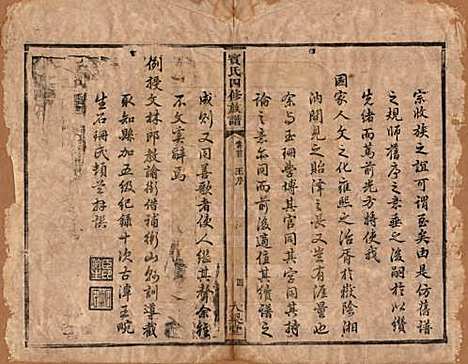 宗收族之誼可謂至矣由是仿舊譜
之規師舊序之意垂之後嗣於以纘
先緒而蔦前光方將我
國家人文之化雍熙之治胥於嶽降湘
汭間見之貽澤之長又豈有涯量也
余與玉珊營博其官同其字同其持
論之意亦同而前後適值其續譜之
賓氏四修族譜
卷首 王序
四
成則又同喜歌者使人繼其聲余經
不文奚辭焉
例授文林郎教諭銜借補衡山縣訓導截
取知縣加五級紀錄十次古潭王晼
生石珊氏頓首拜撰